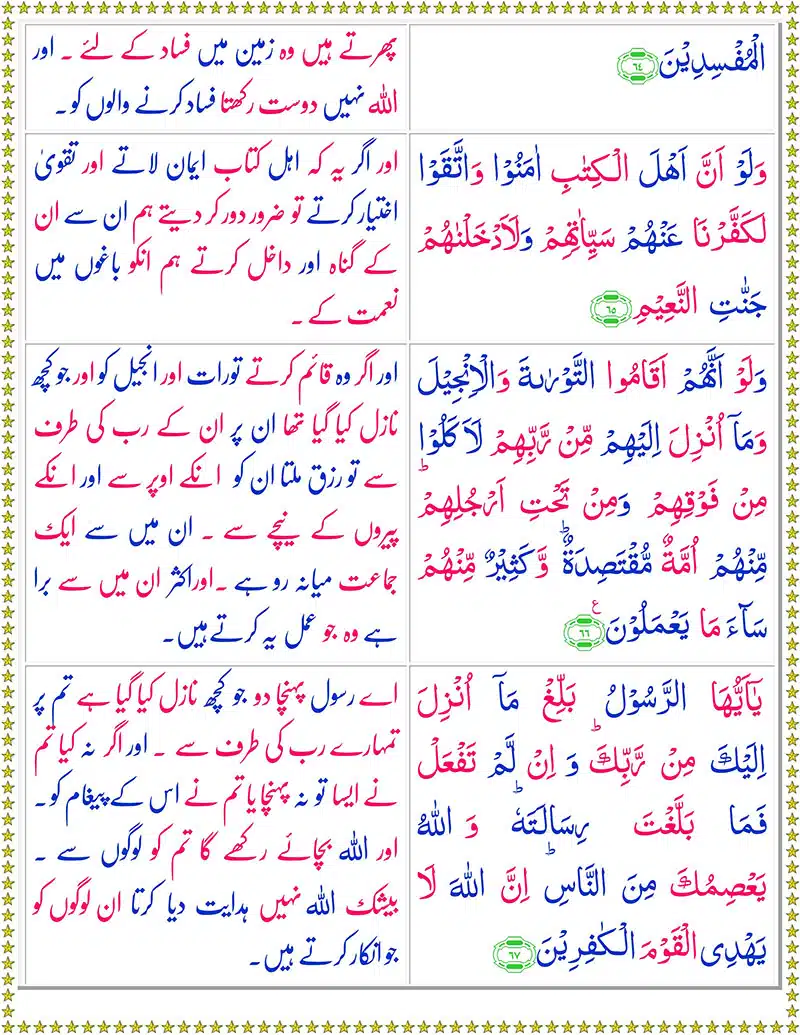 الْمُفْسِدِيْنَ ﴿٦٤﴾
پھرتے ہیں وہ زمین میں فساد کے لئے ۔ اور
اللہ نہیں دوست رکھتا فساد کرنے والوں کو۔
وَلَوْ اَنَّ اَهْلَ الْكِتٰبِ اٰمَنُوْا وَاتَّقَوْا
لَكَفَّرْنَا عَنْهُمْ سَيِّاٰتِهِمْ وَلَاَدْخَلْنٰهُمْ
جَنّٰتِ النَّعِيْمِ ﴿٦٥﴾
اور اگر یہ کہ اہل کتاب ایمان لاتے اور تقویٰ
اختیار کرتے تو ضرور دور کر دیتے ہم ان سے ان
کے گناہ اور داخل کرتے ہم انکو باغوں میں
نعمت کے ۔
وَلَوْ اَنَّهُمْ اَقَامُوا التَّوْرٰىةَ وَالْاِنْجِيْلَ
وَمَاۤ اُنْزِلَ اِلَيْهِمْ مِّنْ رَّبِّهِمْ لَاَكَلُوْا
مِنْ فَوْقِهِمْ وَمِنْ تَحْتِ اَرْجُلِهِمْ ؕ
مِّنْهُمْ اُمَّةٌ مُّقْتَصِدَةٌ ؕ وَّكَثِيْرٌ مِّنْهُمْ
سَآءَ مَا يَعْمَلُوْنَ ﴿٦٦﴾ ع
اور اگر وہ قائم کرتے تورات اور انجیل کو اور جو کچھ
نازل کیا گیا تھا ان پر ان کے رب کی طرف
سے تو رزق ملتا ان کو انکے اوپر سے اور انکے
پیروں کے نیچے سے ۔ ان میں سے ایک
جماعت میانہ رو ہے ۔اور اکثر ان میں سے برا
ہے وہ جو عمل یہ کرتے ہیں۔
يٰۤاَيُّهَا الرَّسُوْلُ بَلِّغْ مَاۤ اُنْزِلَ
اِلَيْكَ مِنْ رَّبِّكَ ؕ وَ اِنْ لَّمْ تَفْعَلْ
فَمَا بَلَّغْتَ رِسَالَتَهٗ ؕ وَ اللّٰهُ
يَعْصِمُكَ مِنَ النَّاسِ ؕ اِنَّ اللّٰهَ لَا
يَهْدِى الْقَوْمَ الْكٰفِرِيْنَ ﴿٦٧﴾
اے رسول پہنچا دو جو کچھ نازل کیا گیا ہے تم پر
تمہارے رب کی طرف سے ۔ اور اگر نہ کیا تم
نے ایسا تو نہ پہنچایا تم نے اس کے پیغام کو۔
اور اللہ بچائے رکھے گا تم کو لوگوں سے ۔
بیشک اللہ نہیں ہدایت دیا کرتا ان لوگوں کو
جو انکار کرتے ہیں۔